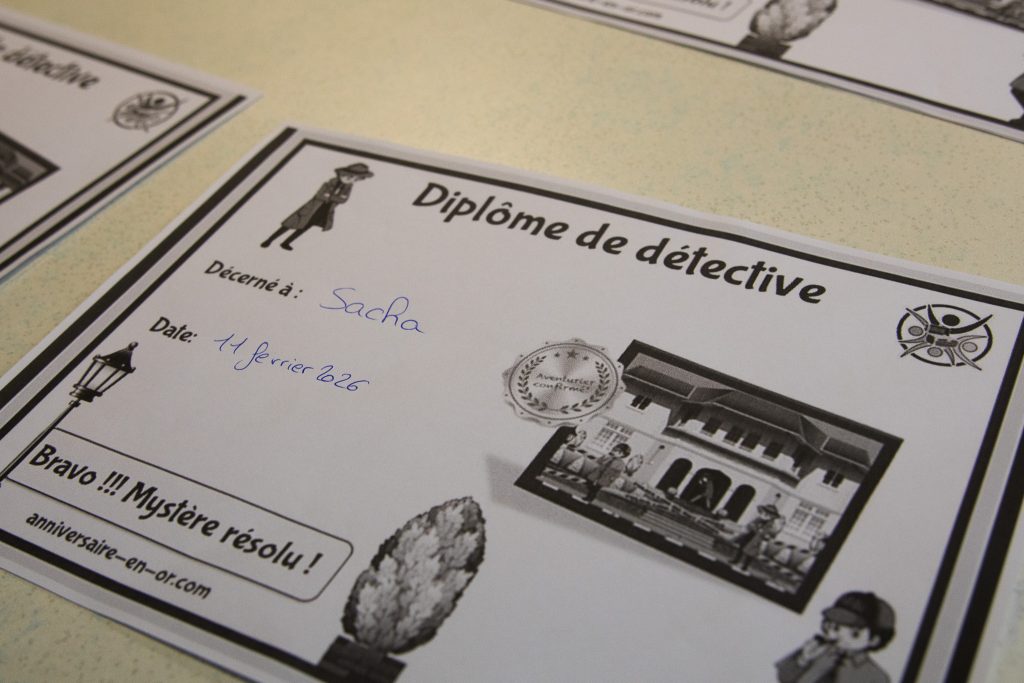 détective
résolu !
Diplôme de détective
Décerné à : Sacha
Date: 11 fevrier 2026
Aventurier
confirmé
Bravo !!! Mystère résolu !
anniversaire-en-or.com